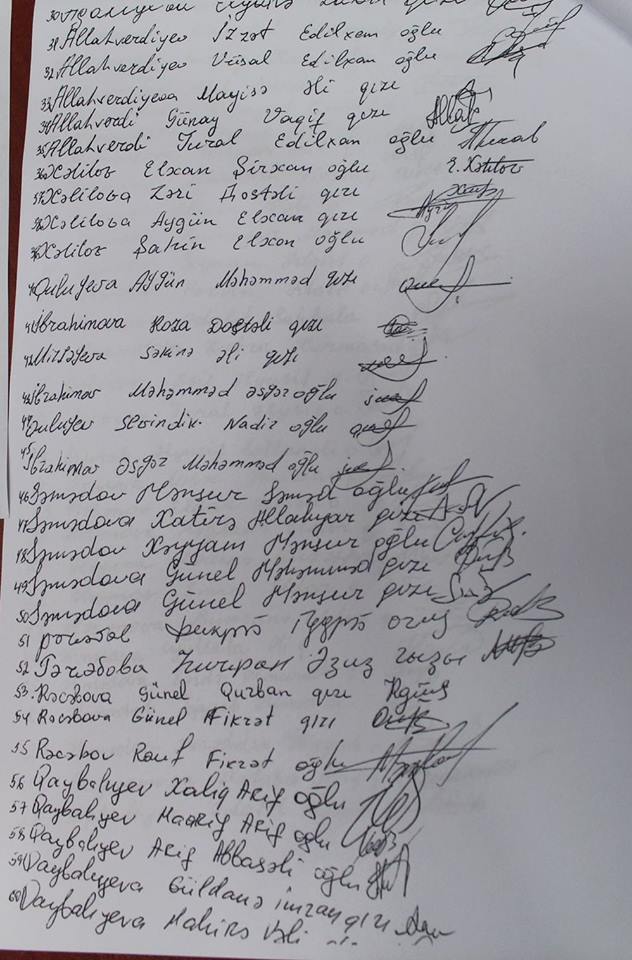 31 Allahverdiyev İzzət Edilxan oğlu
32 Allahverdiyev Vüsal Edilxan oğlu
33 Allahverdiyeva Mayisə Əli qızı
34 Allahverdi Günay Vaqif qızı
35 Allahverdi Tural Edilxan oğlu
36 Xəlilov Elxan Şirxan oğlu E. Xəlilov
37 Xəlilova Zəri Dostəli qızı
38 Xəlilova Aygün Elxan qızı
39 Xəlilov Şahin Elxan oğlu
40 Quluyeva Aygün Məhəmməd qızı
41 İbrahimova Roza Dostəli qızı
42 Mirzəyeva Səkinə Əli qızı
43 İbrahimov Məhəmməd Əsgər oğlu
44 Quluyev Sevindik Nadir oğlu
45 İbrahimov Əsgər Məhəmməd oğlu
46 Səmədov Mənsur Səməd oğlu
47 Səmədova Xatirə Allahyar qızı
48 Səmədov Xəyyam Mənsur oğlu
49 Səmədova Günel Məhəmməd qızı
50 Səmədova Günel Mənsur qızı
51
52 Рәҹәбова Әзиз гызы
53. Rəcəbova Günel Qurban qızı
54 Rəcəbova Günel Fikrət qızı
55 Rəcəbov Rauf Fikrət oğlu
56 Qaybalıyev Xaliq Arif oğlu
57 Qaybalıyev Maarif Arif oğlu
58 Qaybalıyev Arif Abbasəli oğlu
59 Qaybalıyeva Güldanə İmran qızı
60 Qaybalıyeva Mahirə Vəli